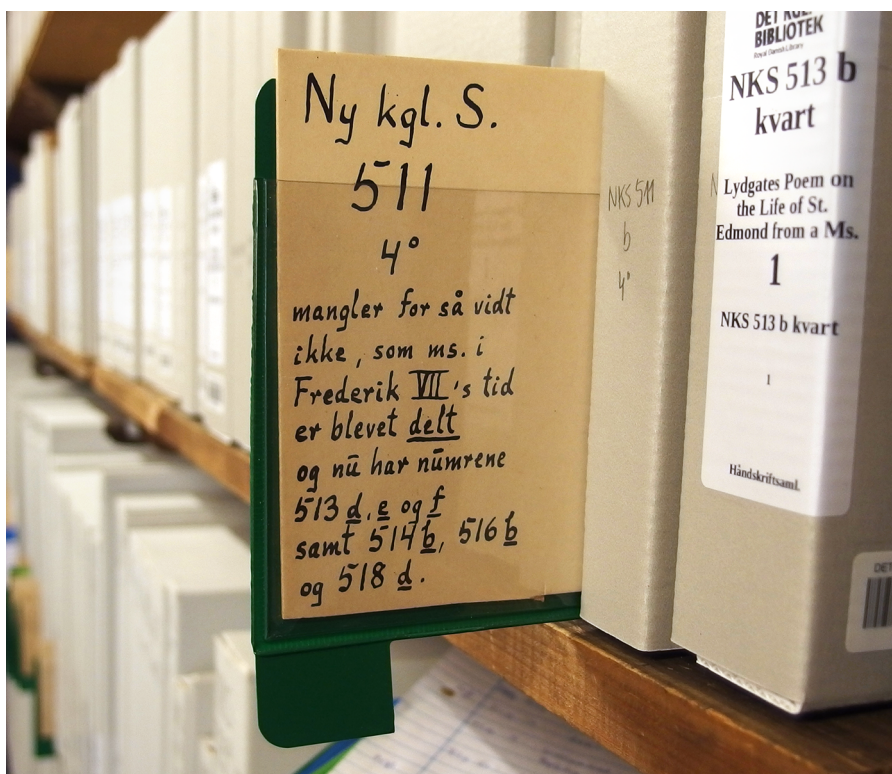 Ny kgl. S.
511
4°
mangler for så vidt
ikke, som ms. i
Frederik VII's tid
er blevet delt
og nū har nūmrene
513 d. e og f
samt 514 b, 516 b
og 518 d.
NKS 511
b
4°
DET KGL
BIBLIOTEK
Royal Danish Library
NKS 513 b
kvart
Lydgates Poem on
the Life of St.
Edmond from a Ms.
1
NKS 513 b kvart
1
Håndskriftsaml.
DET